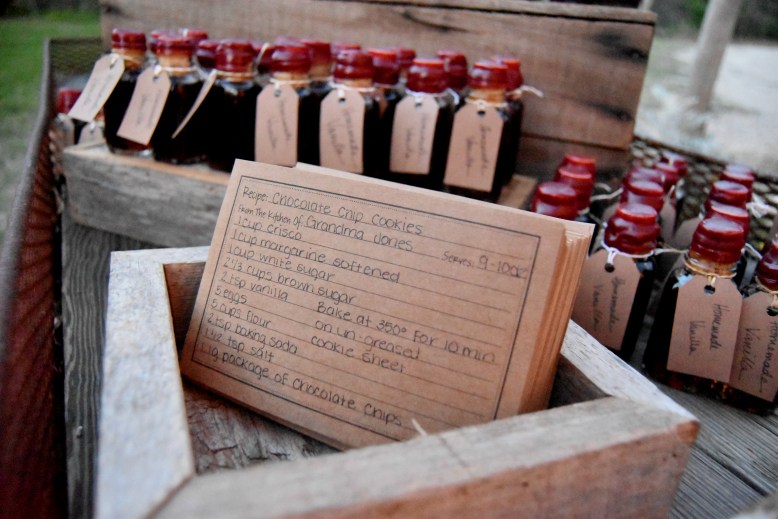 Recipe: Chocolate Chip Cookies
From The Kitchen of Grandma Jones
Serves: 9-10oz
1 cup crisco
1 cup margarine softened
1 cup white sugar
2 1/3 cups brown sugar
2 tsp vanilla
5 eggs
5 cups flour
2 tsp baking soda
1 1/2 tsp salt
1 lg package of chocolate chips
Bake at 350° for 10 min
on un-greased
cookie sheet
Homemade
Vanilla
Homemade
Vanilla
Homemade
Vanilla
Homemade
Vanilla
Homemade
Vanilla
Homemade
Vanilla
Homemade
Vanilla
Homemade
Vanilla